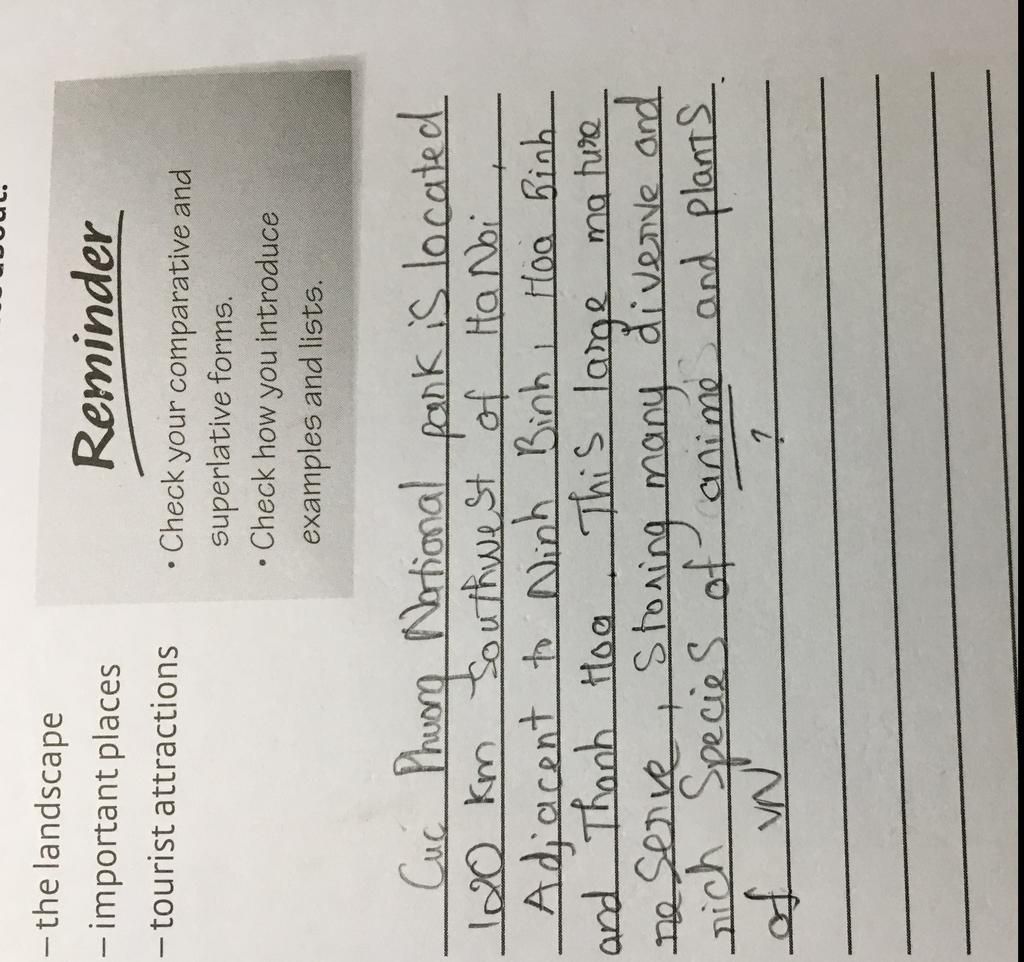 – the landscape
– important places
– tourist attractions
Reminder
• Check your comparative and
superlative forms.
• Check how you introduce
examples and lists.
Cuc Phuong National park is located
120 km Southwest of Ha Noi,
Adjacent to Ninh Binh, Hoa Binh
and Thanh Hoa. This large nature
reserve, Storing many diverve and
rich Species of anime and plants.
of VN ?